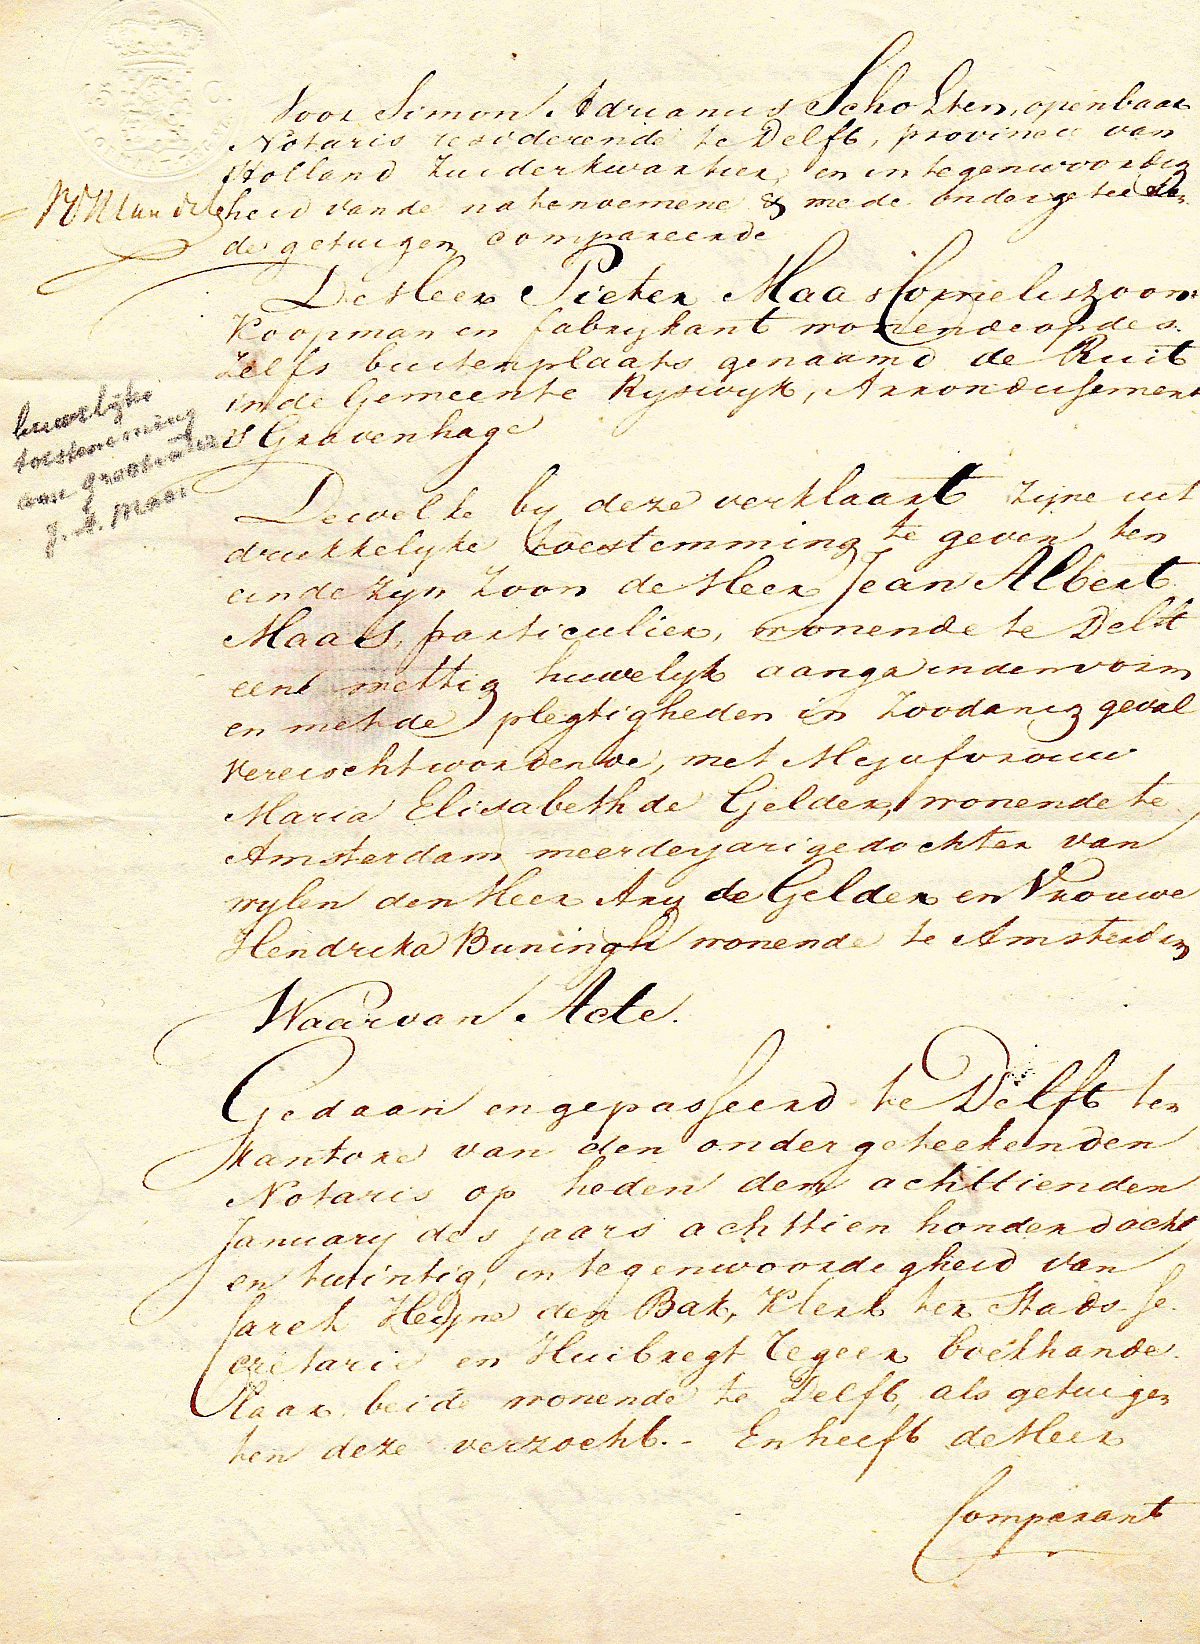 Voor Simon Adrianus Scholten, openbaar
Notaris resideerende te Delft, provincie van
Holland Zuiderkwartier, en in tegenwoordig
heid van de natenoemene & mede ondergeteeke-
de getuigen compareerde
De Heer Pieter Maas Corneliszoon
Koopman en fabrykant wonende op des
zelfs buitenplaats genaamd de Ruit
in de Gemeente Ryswyk, Arrondissement
s Gravenhage
huwelijks
toestemming
aan grootvader
J. A. Maas
Dewelke by deze verklaart zyne uit
drukkelyke toestemming te geven ten
einde zyn zoon de Heer Jean Albert
Maas, particulier, wonende te Delft
een wettig huwelyk aanga in den vorm
en met de plegtigheden in zoodanig geval
vereischt wordende, met Mejufvrouw
Maria Elisabeth de Gelder, wonende te
Amsterdam meerderjarige dochter van
wylen den Heer Ary de Gelder en Vrouwe
Hendrika Buningh wonende te Amsterdam
Waarvan Acte.
Gedaan en gepasseerd te Delft ten
kantore van den ondergeteekenden
Notaris op heden den achttienden
January des jaars achttien honderd acht
en twintig, in tegenwoordigheid van
den Bak, Klerk ter Stads Se-
cretarie en Huibregt Tegeer boekhande-
laar beide wonende te Delft, als getuigen
ten deze verzocht. - En heeft de Heer
Comparant